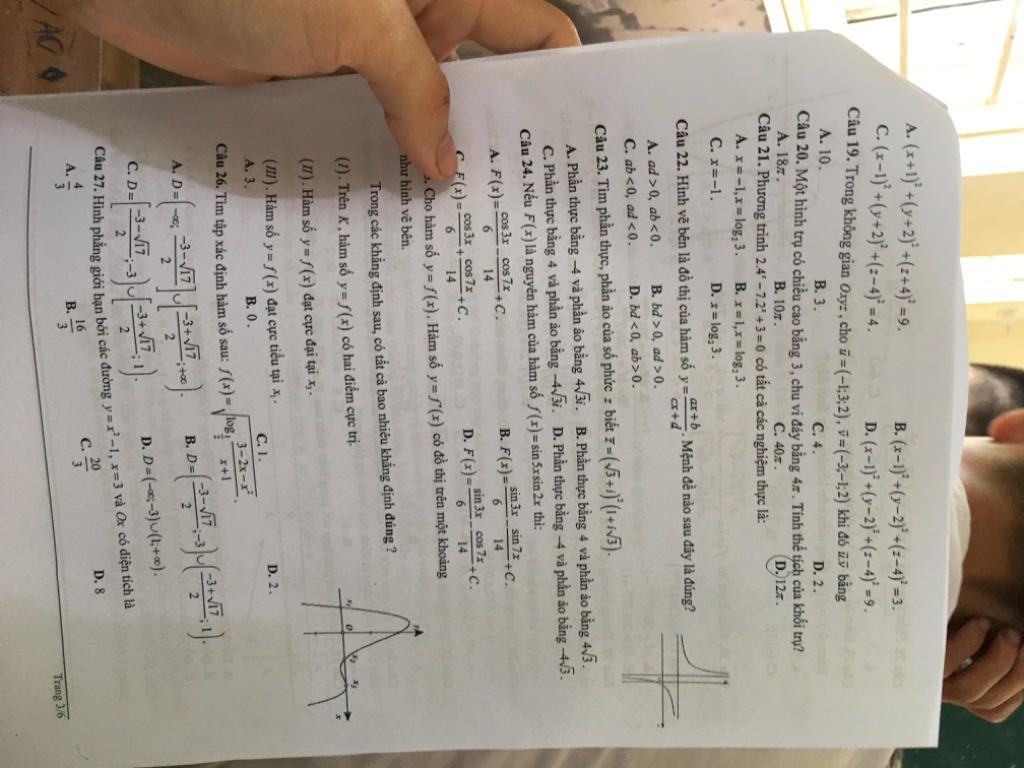 A. (x+1)² + (y+2)² + (z+4)² = 9.  B. (x-1)² + (y-2)² + (z-4)² = 3.
C. (x-1)² + (y+2)² + (z-4)² = 4.  D. (x-1)² + (y-2)² + (z-4)² = 9.
Câu 19. Trong không gian Oxyz, cho u⃗ = (-1;3;2), v⃗ = (-3;-1;2) khi đó u⃗.v⃗ bằng
A. 10.  B. 3.  C. 4.  D. 2.
Câu 20. Một hình trụ có chiều cao bằng 3, chu vi đáy bằng 4π. Tính thể tích của khối trụ?
A. 18π.  B. 10π.  C. 40π.  D. 12π.
Câu 21. Phương trình 2.4ˣ - 7.2ˣ + 3 = 0 có tất cả các nghiệm thực là:
A. x = -1, x = log₂ 3.  B. x = 1, x = log₂ 3.
C. x = -1.  D. x = log₂ 3.
Câu 22. Hình vẽ bên là đồ thị của hàm số y = (ax+b)/(cx+d). Mệnh đề nào sau đây là đúng?
A. ad > 0, ab < 0.  B. bd > 0, ad > 0.
C. ab < 0, ad < 0.  D. bd < 0, ab > 0.
Câu 23. Tìm phần thực, phần ảo của số phức z biết z̄ = (√3+i)²(1+i√3).
A. Phần thực bằng -4 và phần ảo bằng 4√3i.  B. Phần thực bằng 4 và phần ảo bằng 4√3.
C. Phần thực bằng 4 và phần ảo bằng -4√3i.  D. Phần thực bằng -4 và phần ảo bằng -4√3.
Câu 24. Nếu F(x) là nguyên hàm của hàm số f(x) = sin5x sin2x thì:
A. F(x) = cos3x/6 - cos7x/14 + C.  B. F(x) = sin3x/6 - sin7x/14 + C.
C. F(x) = cos3x/6 + cos7x/14 + C.  D. F(x) = sin3x/6 - cos7x/14 + C.
Cho hàm số y = f(x). Hàm số y = f'(x) có đồ thị trên một khoảng
như hình vẽ bên.
Trong các khẳng định sau, có tất cả bao nhiêu khẳng định đúng ?
(I). Trên K, hàm số y = f(x) có hai điểm cực trị.
(II). Hàm số y = f(x) đạt cực đại tại x₃.
(III). Hàm số y = f(x) đạt cực tiểu tại x₁.
A. 3.  B. 0.  C. 1.  D. 2.
y
x₁ O x₂ x₃ x
Câu 26. Tìm tập xác định hàm số sau: f(x) = √(log_{1/2} (3-2x-x²)/(x+1)).
A. D = (-∞; (-3-√17)/2] ∪ [(-3+√17)/2; +∞).  B. D = ((-3-√17)/2; -3) ∪ ((-3+√17)/2; 1).
C. D = [(-3-√17)/2; -3) ∪ [(-3+√17)/2; 1).  D. D = (-∞; -3) ∪ (1; +∞).
Câu 27. Hình phẳng giới hạn bởi các đường y = x² - 1, x = 3 và Ox có diện tích là
A. 4/3  B. 16/3.  C. 20/3  D. 8
Trang 3/6